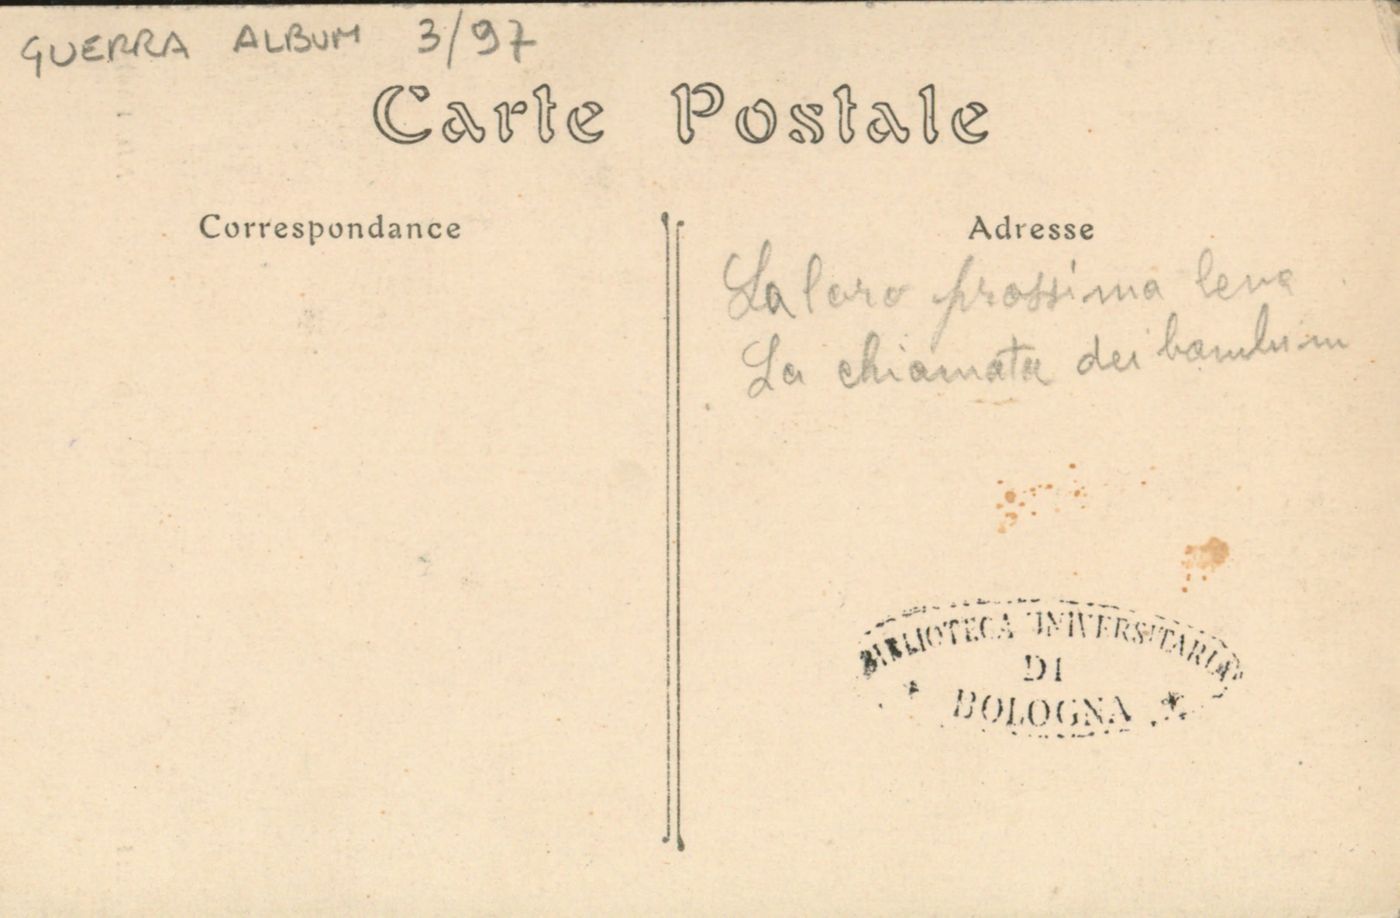 GUERRA ALBUM 3/97
Carte Postale
Correspondance
Adresse
La loro prossima leva
La chiamata dei
BIBLIOTECA UNIVERSITARIA
DI
BOLOGNA